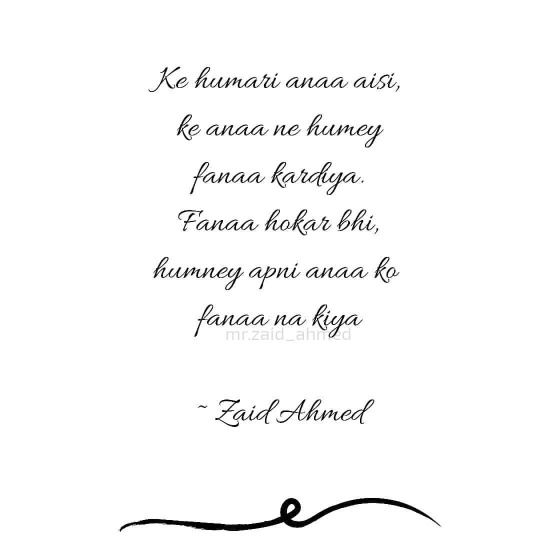 Ke humari anaa aisi,
ke anaa ne humey
fanaa kardiya.
Fanaa hokar bhi,
humney apni anaa ko
fanaa na kiya
mr.zaid_ahmed
~ Zaid Ahmed